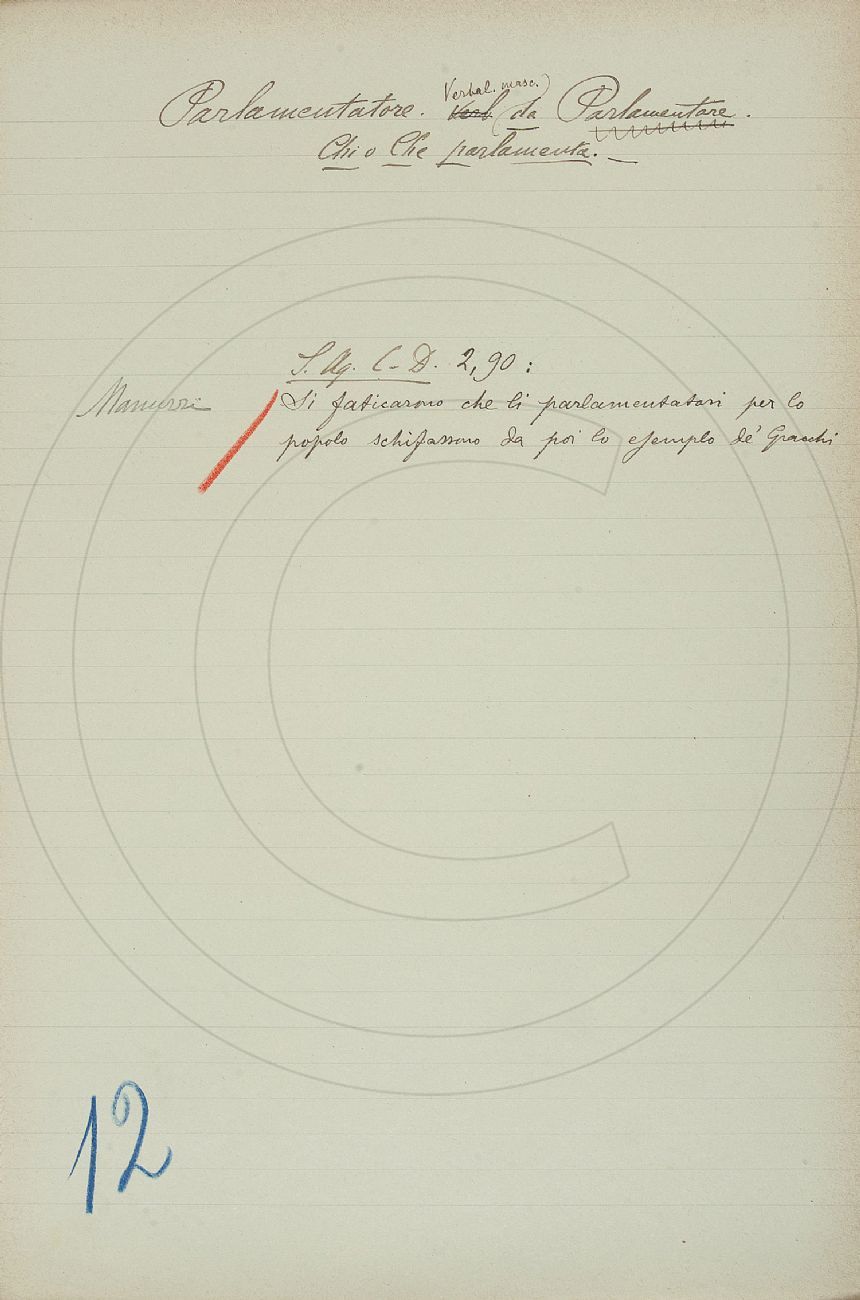 Parlamentatore. Verb Verbal. masc.) da Parlamentare.
Chi o Che parlamenta. —
S. Ag. C. D. 2, 90 :
Si faticarono che li parlamentatori per lo
popolo schifassono da poi lo esemplo de' Gracchi
12